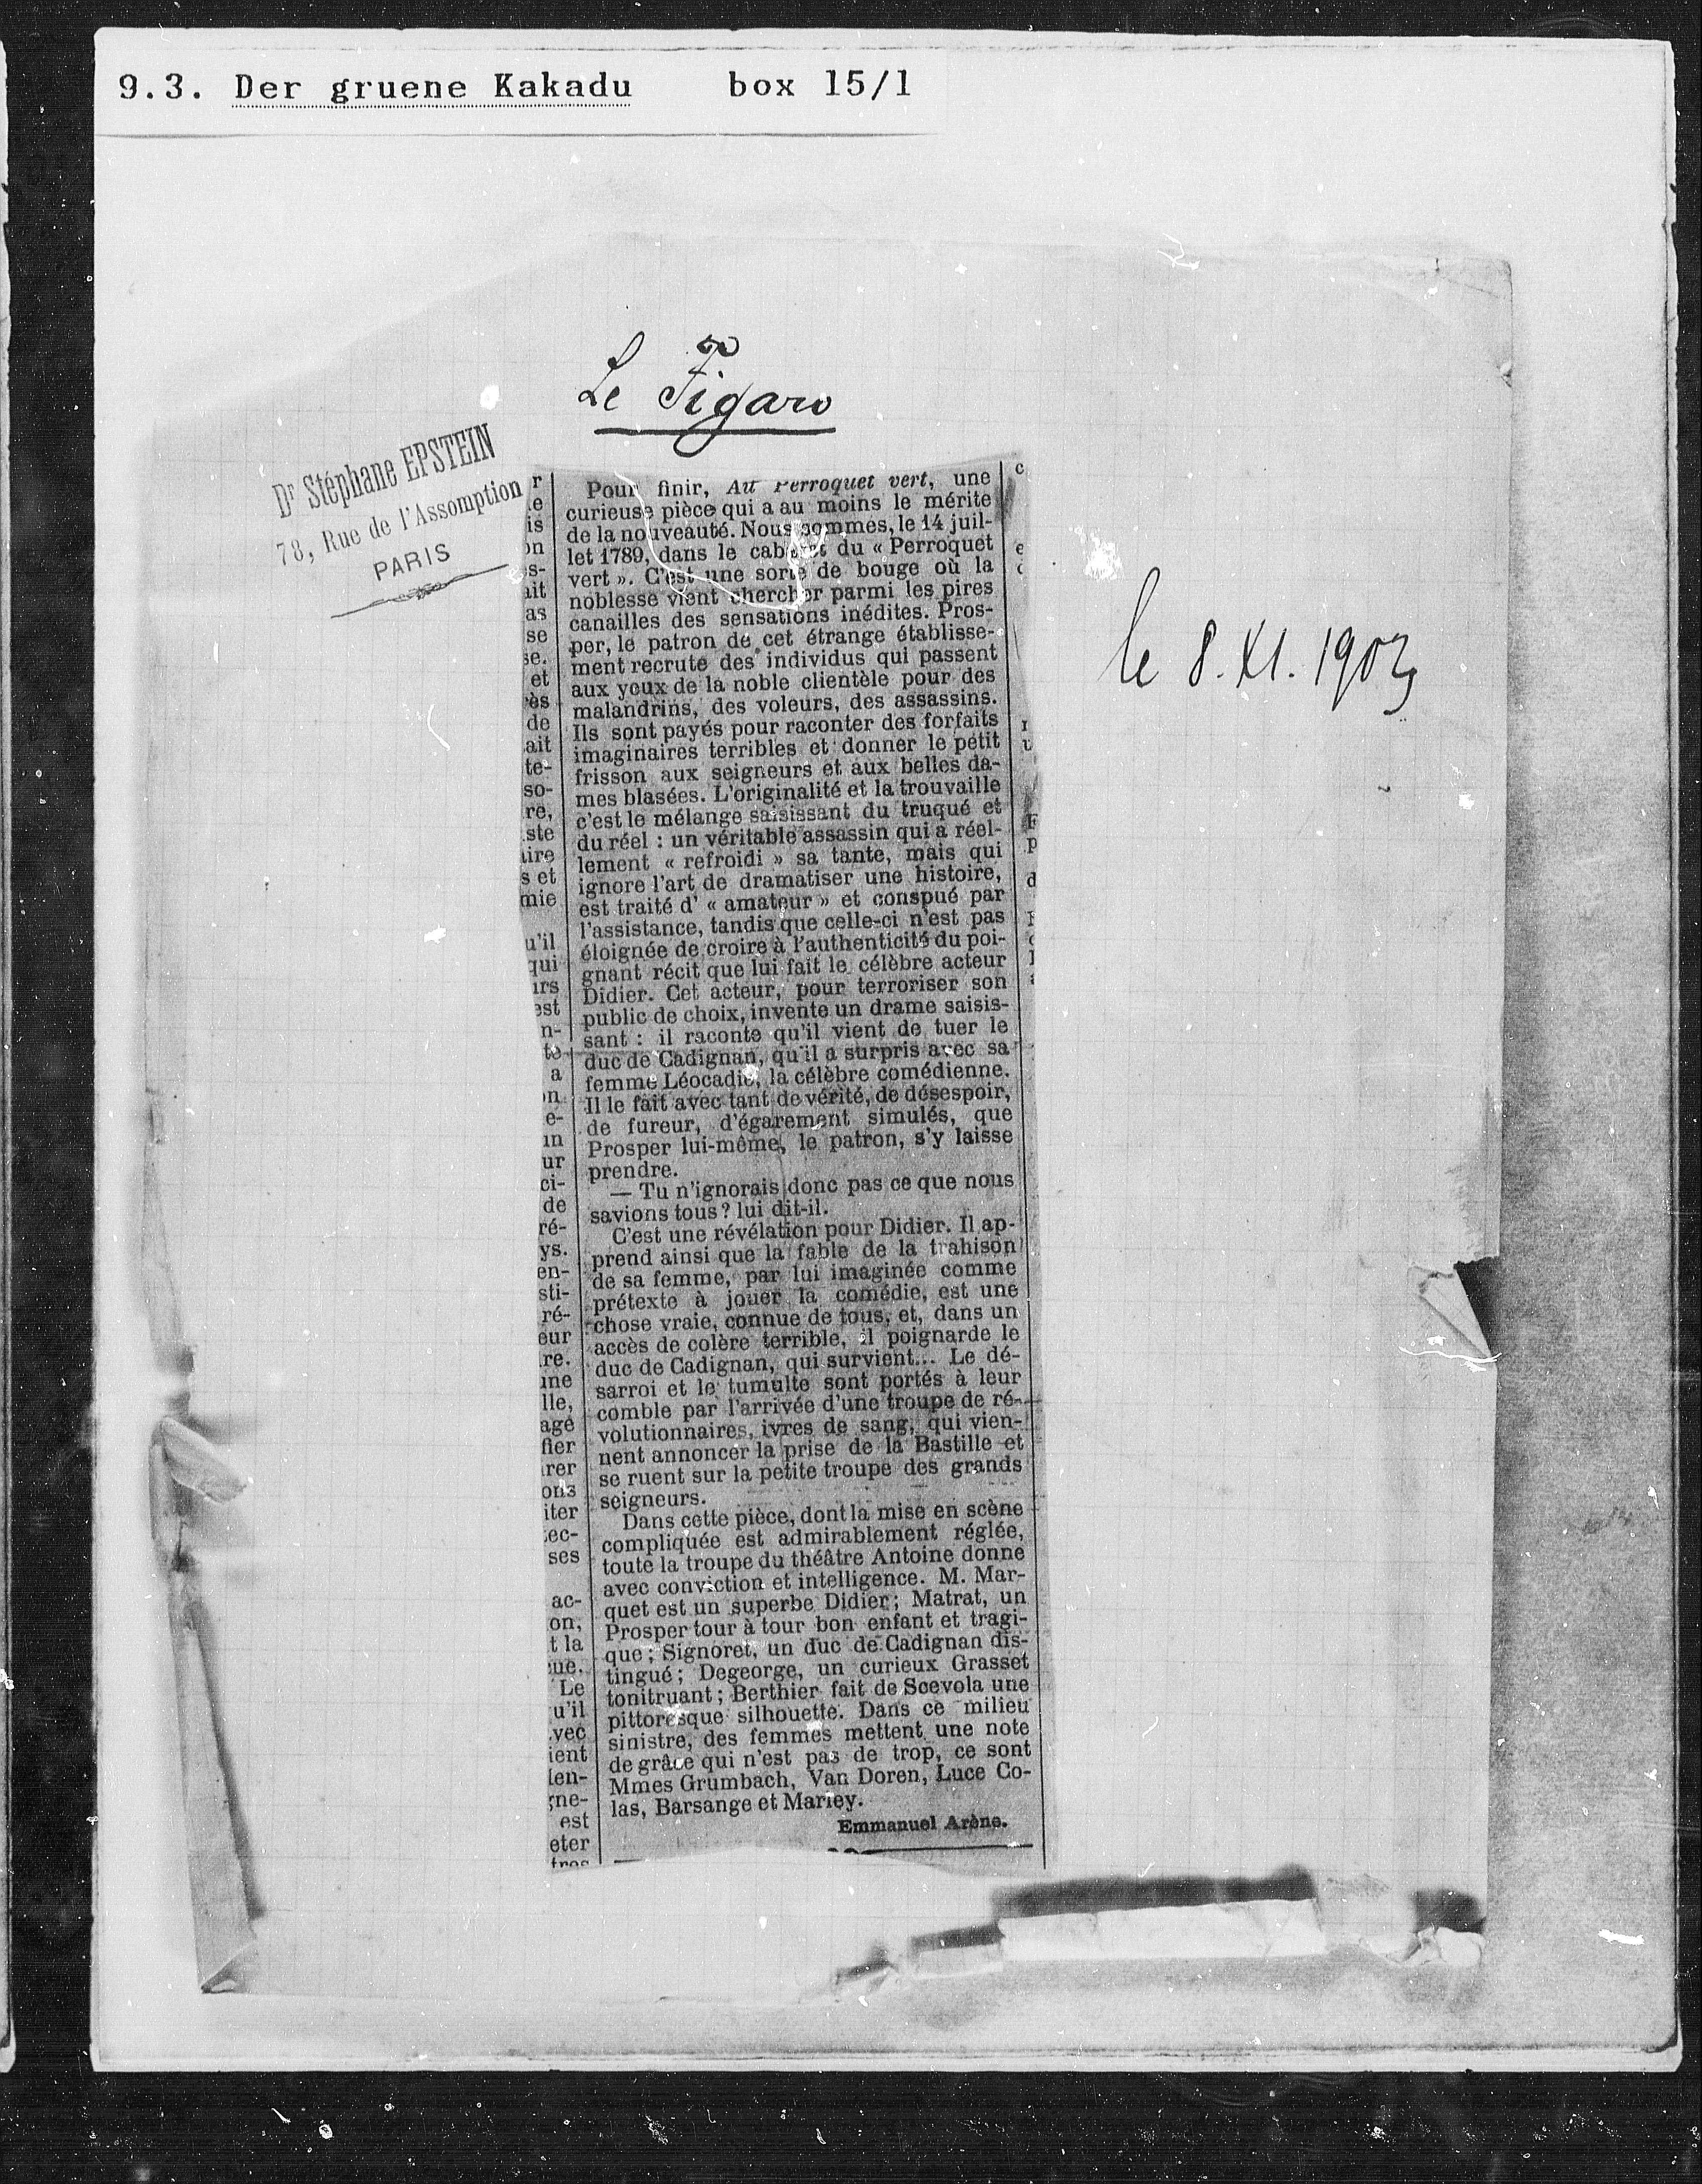 9.3. Der gruene Kakadu box 15/1
Le Figaro
Dr Stéphane EPSTEIN
78, Rue de l'Assomption
PARIS
le 8.XI.1903
Pour finir, Au Perroquet vert, une
curieuse pièce qui a au moins le mérite
de la nouveauté. Nous sommes, le 14 juil-
let 1789, dans le cabaret du « Perroquet
vert ». C'est une sorte de bouge où la
noblesse vient chercher parmi les pires
canailles des sensations inédites. Pros-
per, le patron de cet étrange établisse-
ment recrute des individus qui passent
aux yeux de la noble clientèle pour des
malandrins, des voleurs, des assassins.
Ils sont payés pour raconter des forfaits
imaginaires terribles et donner le petit
frisson aux seigneurs et aux belles da-
mes blasées. L'originalité et la trouvaille
c'est le mélange saisissant du truqué et
du réel : un véritable assassin qui a réel-
lement « refroidi » sa tante, mais qui
ignore l'art de dramatiser une histoire,
est traité d' « amateur » et conspué par
l'assistance, tandis que celle-ci n'est pas
éloignée de croire à l'authenticité du poi-
gnant récit que lui fait le célèbre acteur
Didier. Cet acteur, pour terroriser son
public de choix, invente un drame saisis-
sant : il raconte qu'il vient de tuer le
duc de Cadignan, qu'il a surpris avec sa
femme Léocadie, la célèbre comédienne.
Il le fait avec tant de vérité, de désespoir,
de fureur, d'égarement simulés, que
Prosper lui-même, le patron, s'y laisse
prendre.
— Tu n'ignorais donc pas ce que nous
savions tous ? lui dit-il.
C'est une révélation pour Didier. Il ap-
prend ainsi que la fable de la trahison
de sa femme, par lui imaginée comme
prétexte à jouer la comédie, est une
chose vraie, connue de tous, et, dans un
accès de colère terrible, il poignarde le
duc de Cadignan, qui survient... Le dé-
sarroi et le tumulte sont portés à leur
comble par l'arrivée d'une troupe de ré-
volutionnaires, ivres de sang, qui vien-
nent annoncer la prise de la Bastille et
se ruent sur la petite troupe des grands
seigneurs.
Dans cette pièce, dont la mise en scène
compliquée est admirablement réglée,
toute la troupe du théâtre Antoine donne
avec conviction et intelligence. M. Mar-
quet est un superbe Didier ; Matrat, un
Prosper tour à tour bon enfant et tragi-
que ; Signoret, un duc de Cadignan dis-
tingué ; Degeorge, un curieux Grasset
tonitruant ; Berthier fait de Scevola une
pittoresque silhouette. Dans ce milieu
sinistre, des femmes mettent une note
de grâce qui n'est pas de trop, ce sont
Mmes Grumbach, Van Doren, Luce Co-
las, Barsange et Marley.
Emmanuel Arène.